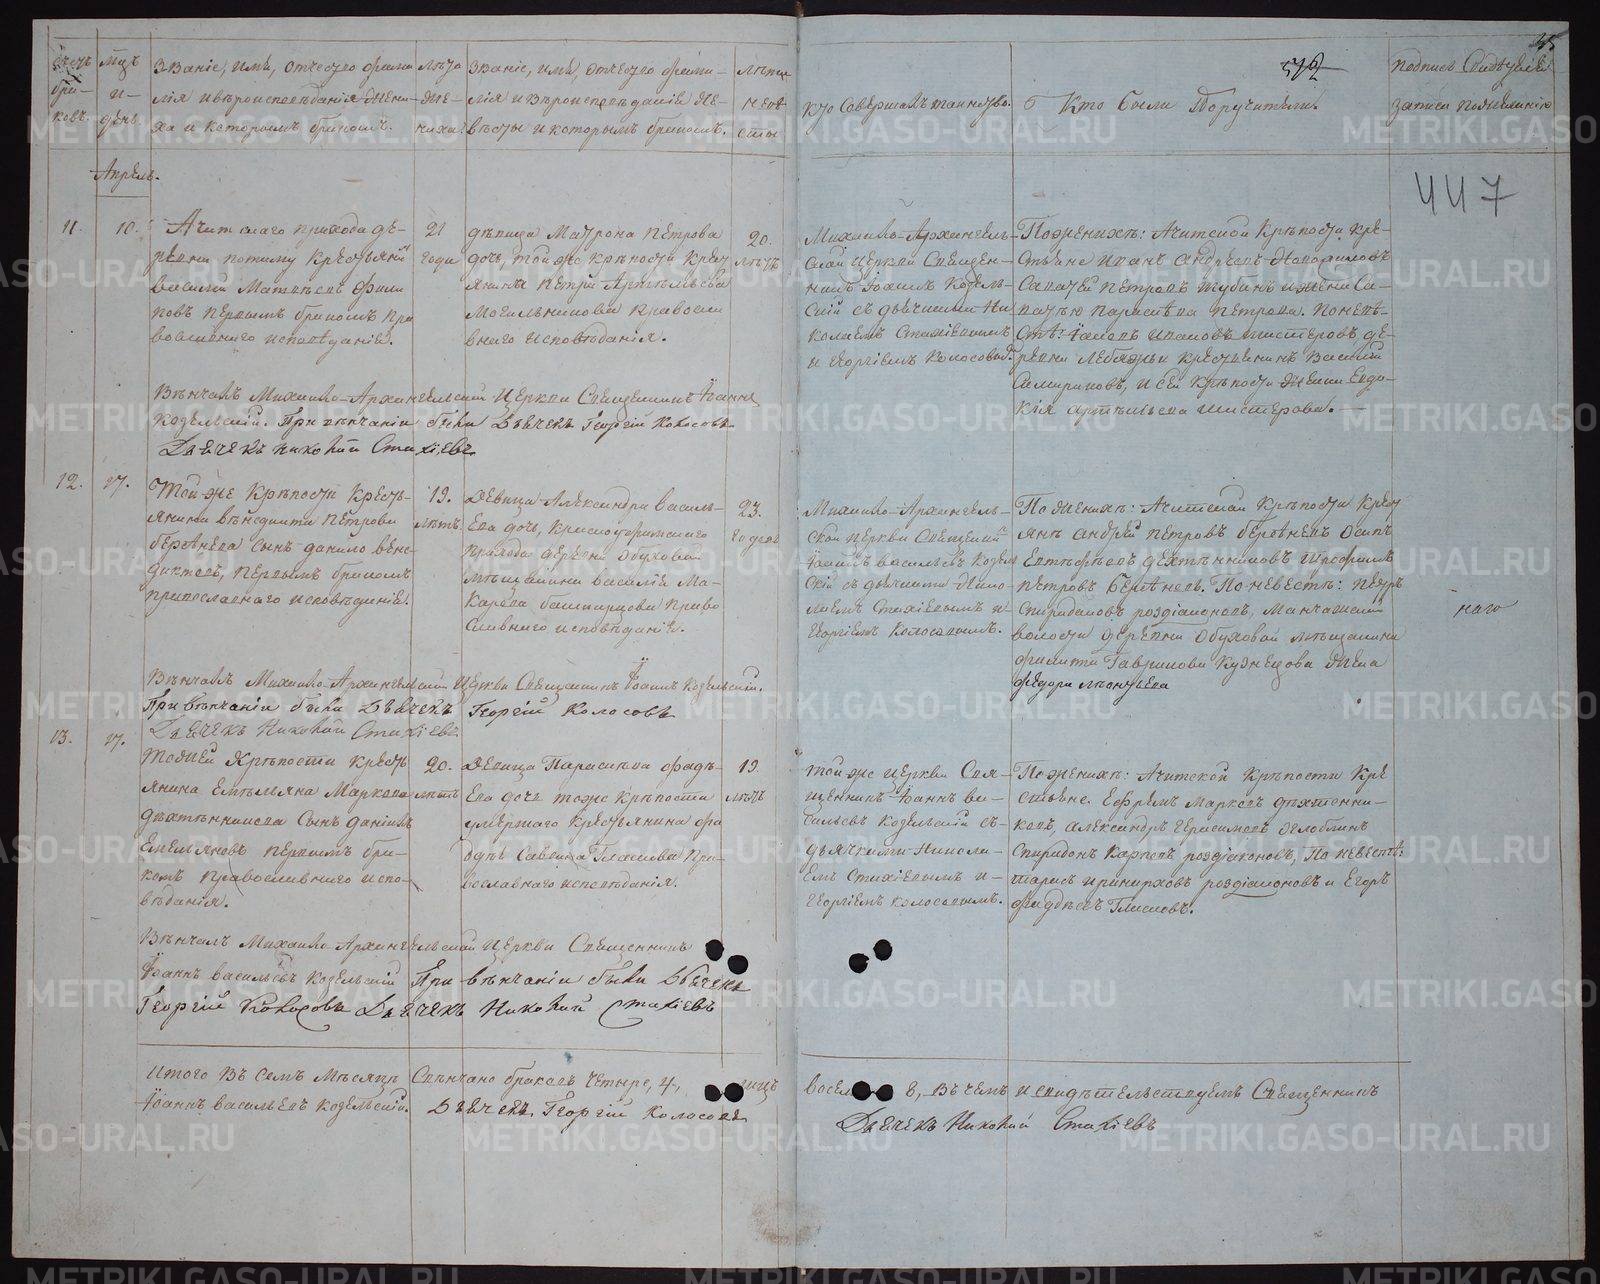 Счетъ браковъ.
Мцъ и день.
Званіе, имя, отчество фамилія и вѣроисповѣданіе жениха и которымъ бракомъ.
Лѣта жениха
Званіе, имя, отчество фамилія и вѣроисповѣданіе невѣсты и которымъ бракомъ.
Лѣта невѣсты
Кто совершалъ таинство.
Кто были поручители.
Подпись свидѣтелей записи по желанію
447
Апрѣль.
11.
10.
Ачитскаго прихода де-
ревни
василій Матвѣевъ
повъ первымъ бракомъ пра
вославнаго исповѣданія.
21
года
дѣвица Матрона Петрова
дочь, той же крѣпости крест
янина Петра Артемьева
Могильникова правосла
внаго исповѣданія.
20.
лѣтъ
Михаило-Архангель-
ской церкви Священ-
никъ Іоаннъ Козель-
скій съ дьячками Ни
колаемъ Стахіевымъ
и Георгіемъ Колосовы
По женихѣ: Ачитской крѣпости кре-
стьяне Иванъ Андреевъ
Петровъ
Параскева Петрова. По невѣ-
стѣ: Ивановъ Шистеровъ, де-
ревни Лебяжьи крестьянинъ Василій
и сей крѣпости жена Евдо-
кія Артемьева Шистерова.
Вѣнчалъ Михаило-Архангельской церкви Священникъ Іоаннъ
Козельскій. При вѣнчаніи были Дьячекъ Георгій Колосовъ
Дьячекъ Николай Стахіевъ
12.
27.
Той же крѣпости кресть-
янина Венедикта Петрова
Береснева сынъ Данило Вене
диктовъ, первымъ бракомъ
православнаго исповѣданія.
19.
лѣтъ
Девица Александра Василь-
ева дочь, Красноуфимскаго
прихода деревни Обуховой
мѣщанина Василія Ма-
карова Башкирцова право
славнаго исповѣданія.
23.
года
Михаило-Архангель-
ской церкви Священникъ
Іоаннъ Васильевъ Козель
скій съ дьячками Нико-
лаемъ Стахіевымъ и
Георгіемъ Колосовымъ.
По женихѣ: Ачитской крѣпости крест
янъ Андрей Петровъ Бересневъ Осипъ
Дехтянниковъ Трофимъ
Петровъ Бересневъ. По невестѣ: Петръ
Спиридоновъ Роздіаконовъ, Манчажской
волости деревни Обуховой мѣщанина
Гаврилова Кузнецова жена
Федора Леонтьева
наго
Вѣнчалъ Михаило-Архангельской церкви Священникъ Іоаннъ Козельскій.
При вѣнчаніи были Дьячекъ Георгій Колосовъ
Дьячекъ Николай Стахіевъ
13.
27.
Той же крѣпости кресть
янина Емельяна Маркова
Дехтянникова сынъ Даніилъ
Емельяновъ первымъ бра-
комъ православнаго испо-
вѣданія.
20.
лѣтъ
Девица Параскева Фадѣ-
ева дочь тоже крѣпости
умершаго крестьянина Фа
дѣя Савина Глазова пра-
вославнаго исповѣданія.
19.
лѣтъ
Той же церкви Свя-
щенникъ Іоаннъ Ва-
сильевъ Козельскій съ
дьячками Никола-
емъ Стахіевымъ и
Георгіемъ Колосовымъ.
По женихѣ: Ачитской крѣпости кре
стьяне: Ефремъ Марковъ Дехтянни-
ковъ, Александръ Герасимовъ Оглоблинъ
Спиридонъ Карповъ Роздіаконовъ, По невестѣ:
Тарасъ Роздіаконовъ и Егоръ
Фадѣевъ Глазовъ.
Вѣнчалъ Михаило-Архангельской церкви Священникъ
Іоаннъ Васильевъ Козельскій При вѣнчаніи были Дьячекъ
Георгій Колосовъ Дьячекъ Николай Стахіевъ
Итого въ семъ мѣсяцѣ свѣнчано браковъ четыре, 4, лицъ восемь 8, въ чемъ и свидѣтельствуемъ Священникъ
Іоаннъ Васильевъ Козельскій. Дьячекъ Георгій Колосовъ Дьячекъ Николай Стахіевъ
METRIKI.GASO-URAL.RU